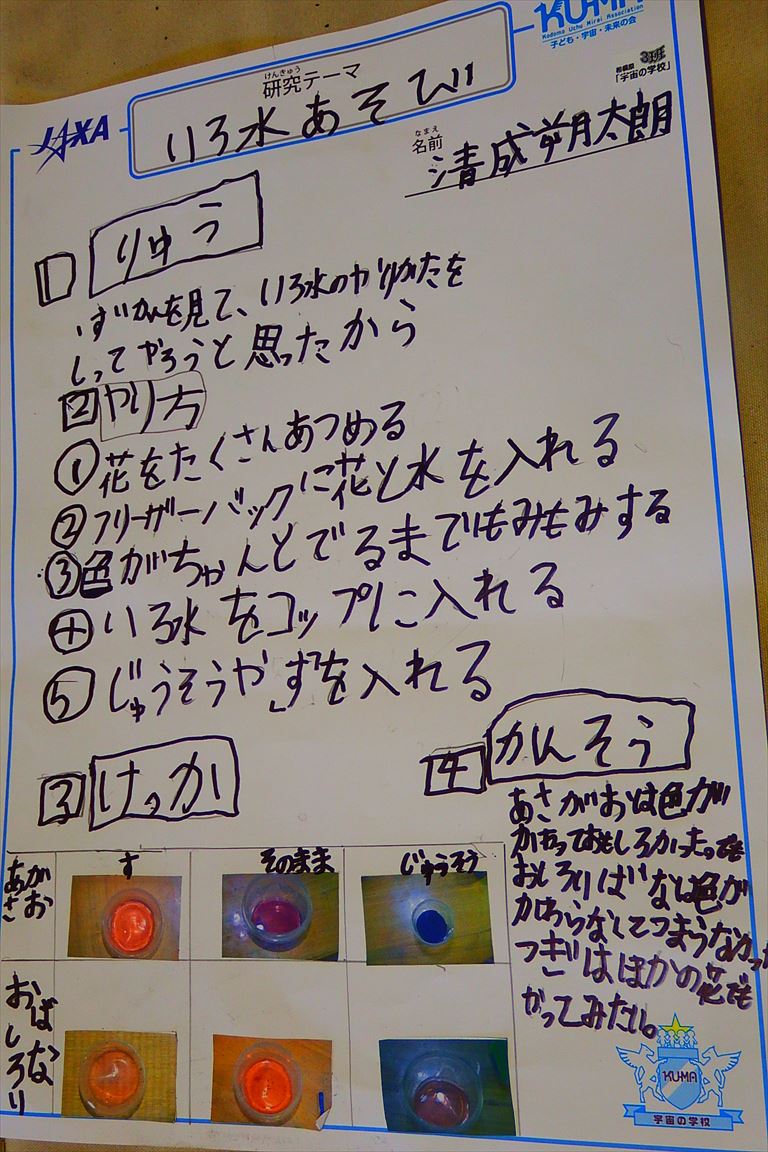 JAXA
けんきゅう
研究テーマ
いろ水あそび
KUMA
Kodomo Uchu Mirai Association
子ども・宇宙・未来の会
相模原 3班
「宇宙の学校」
なまえ
名前
清成 朔太朗
1 りゅう
ずかんを見て、いろ水のやりかたを
しってやろうと思ったから
2 やり方
① 花をたくさんあつめる
② フリーザーバックに花と水を入れる
③ 色がちゃんとでるまでもみもみする
④ いろ水をコップに入れる
⑤ じゅうそうやすを入れる
3 けっか
す そのまま じゅうそう
あさがお
おしろいばな
4 かんそう
あさがおは色が
かわっておもしろかったでも
おしろいばなは色が
かわらなくてつまらなかった
つぎはほかの花でも
やってみたい。
KUMA
宇宙の学校